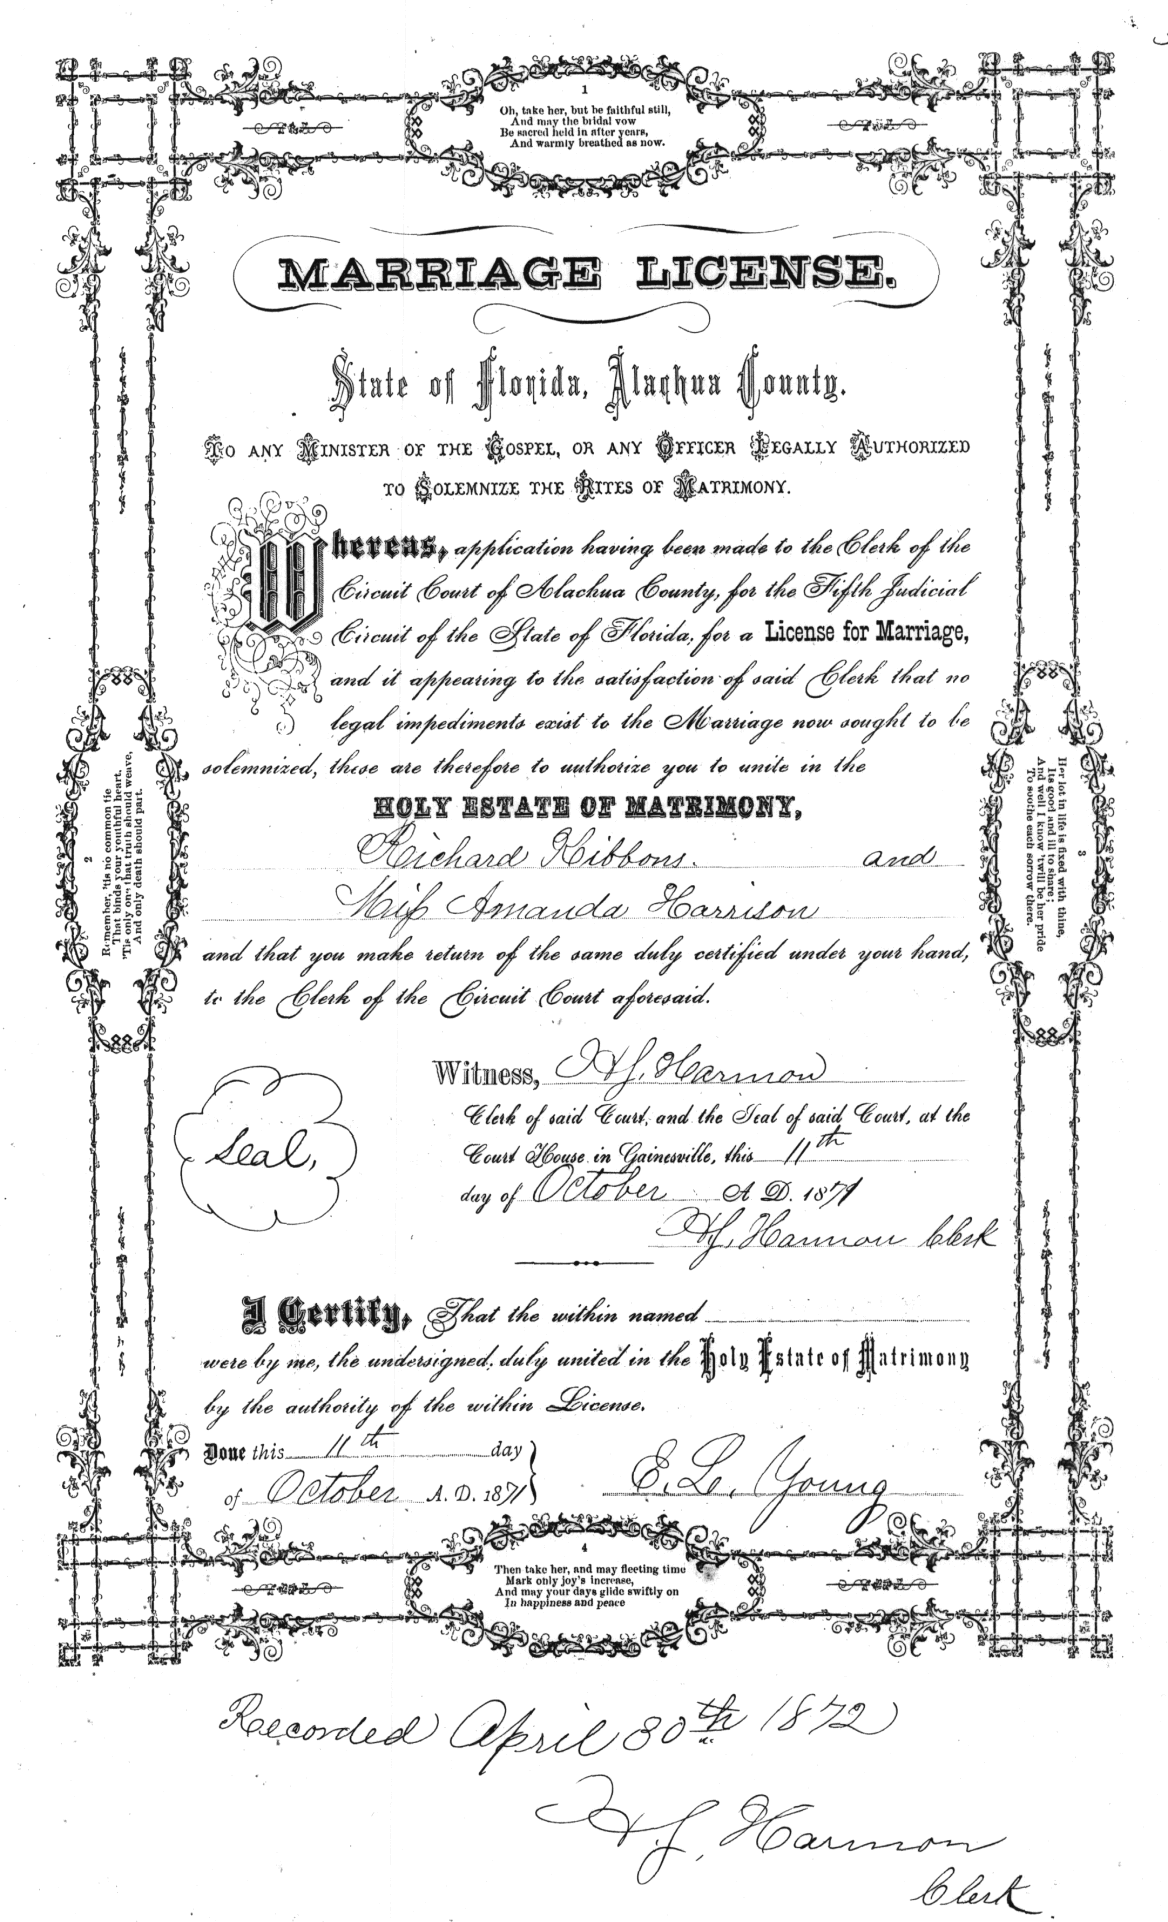 1
Oh, take her, but be faithful still,
And may the bridal vow
Be sacred held in after years,
And warmly breathed as now.
MARRIAGE LICENSE.
State of Florida, Alachua County.
TO ANY MINISTER OF THE GOSPEL, OR ANY OFFICER LEGALLY AUTHORIZED
TO SOLEMNIZE THE RITES OF MATRIMONY.
Whereas, application having been made to the Clerk of the
Circuit Court of Alachua County, for the Fifth Judicial
Circuit of the State of Florida, for a License for Marriage,
and it appearing to the satisfaction of said Clerk that no
legal impediments exist to the Marriage now sought to be
solemnized, these are therefore to authorize you to unite in the
HOLY ESTATE OF MATRIMONY,
Richard Kibbons. and
Miss Amanda Harrison
and that you make return of the same duly certified under your hand,
to the Clerk of the Circuit Court aforesaid.
2
Remember, 'tis no common tie
That binds your youthful heart.
'Tis only one that truth should weave,
And only death should part.
3
Her lot in life is fixed with thine,
Its good and ill to share;
And well I know 'twill be her pride
To soothe each sorrow there.
Witness, H J. Harmon
Clerk of said Court, and the Seal of said Court, at the
Court House in Gainesville, this 11th
day of October A. D. 1871
H J. Harmon Clerk
Seal,
I Certify, That the within named
were by me, the undersigned, duly united in the Holy Estate of Matrimony
by the authority of the within License.
Done this 11th day
of October A. D. 1871
E. L. Young
4
Then take her, and may fleeting time
Mark only joy's increase,
And may your days glide swiftly on
In happiness and peace
Recorded April 30th 1872
H J. Harmon
Clerk